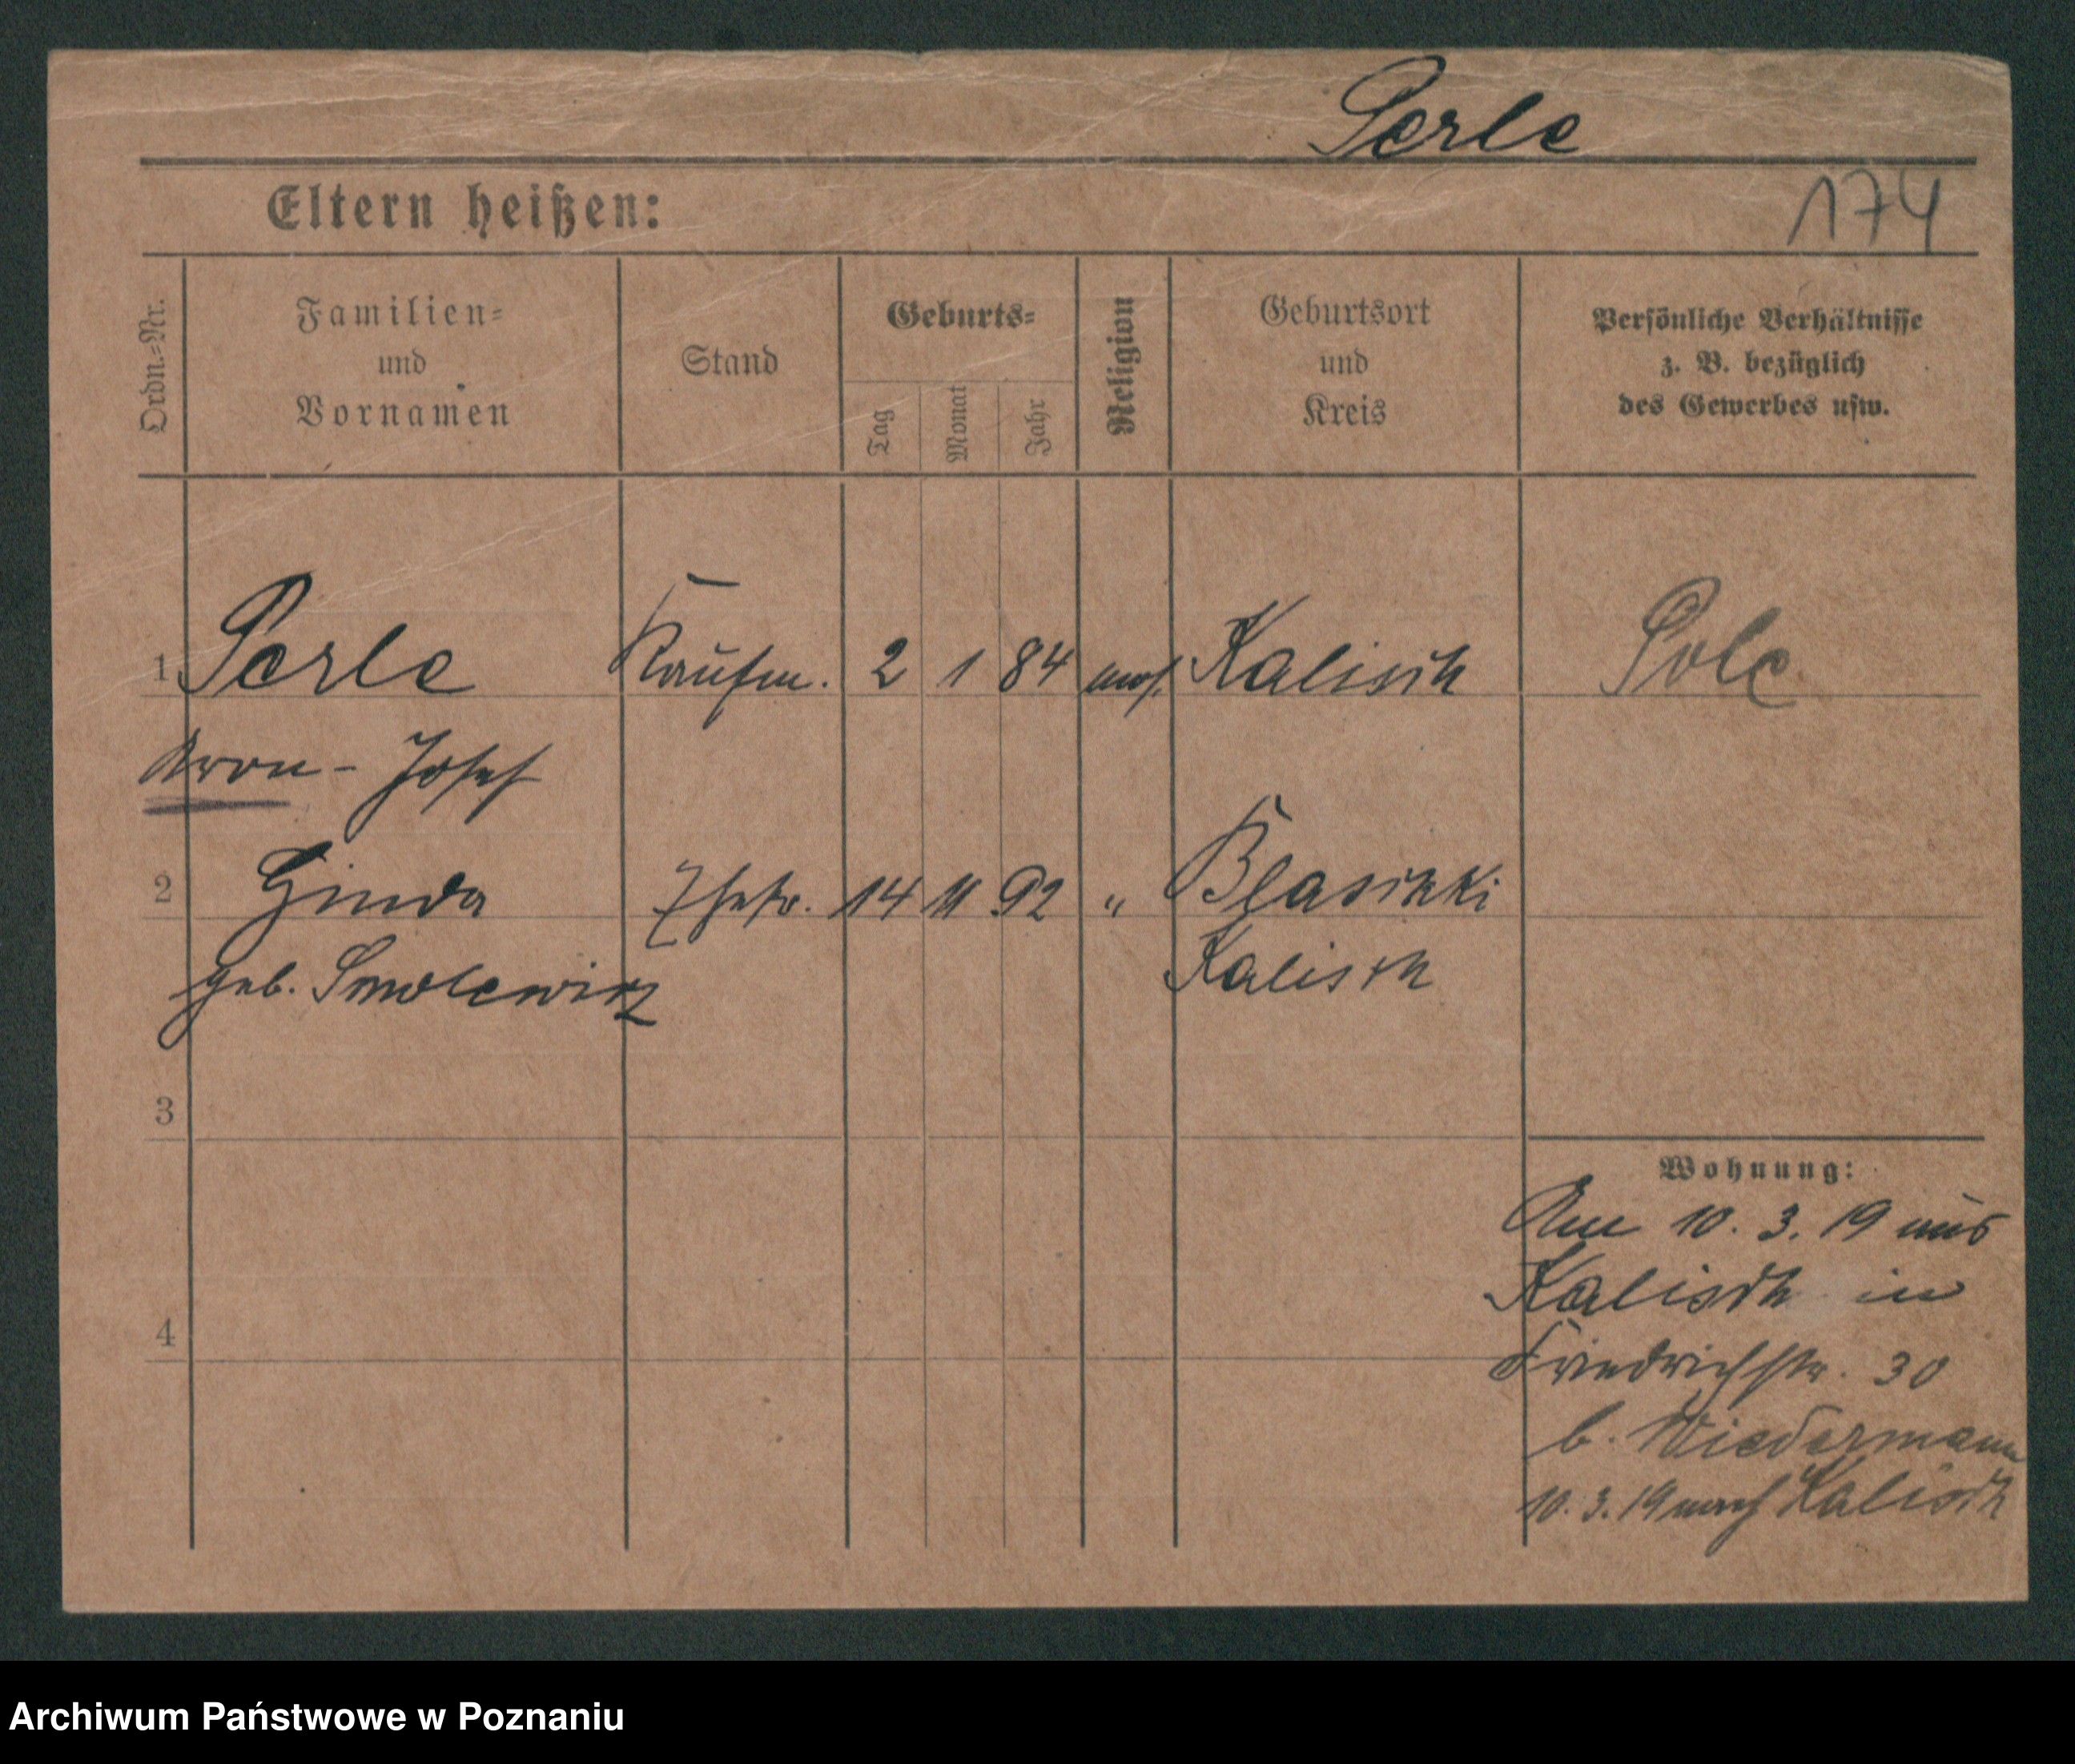 Perle
174
Eltern heißen:
Ordn.=Nr.
Familien=
und
Vornamen
Stand
Geburts=
Tag
Monat
Jahr
Religion
Geburtsort
und
Kreis
Persönliche Verhältnisse
z. B. bezüglich
des Gewerbes usw.
1 Perle Kaufm. 2 1 84 mos. Kalisch Pole
Aron - Josef
2 Hinda Ehefr. 14 11 92 " Blaschki
geb. Smolewicz Kalisch
3
4
Wohnung:
Am 10. 3. 19 aus
Kalisch in
Friedrichstr. 30
b. Wiedermann
10. 3. 19 nach Kalisch
Archiwum Państwowe w Poznaniu